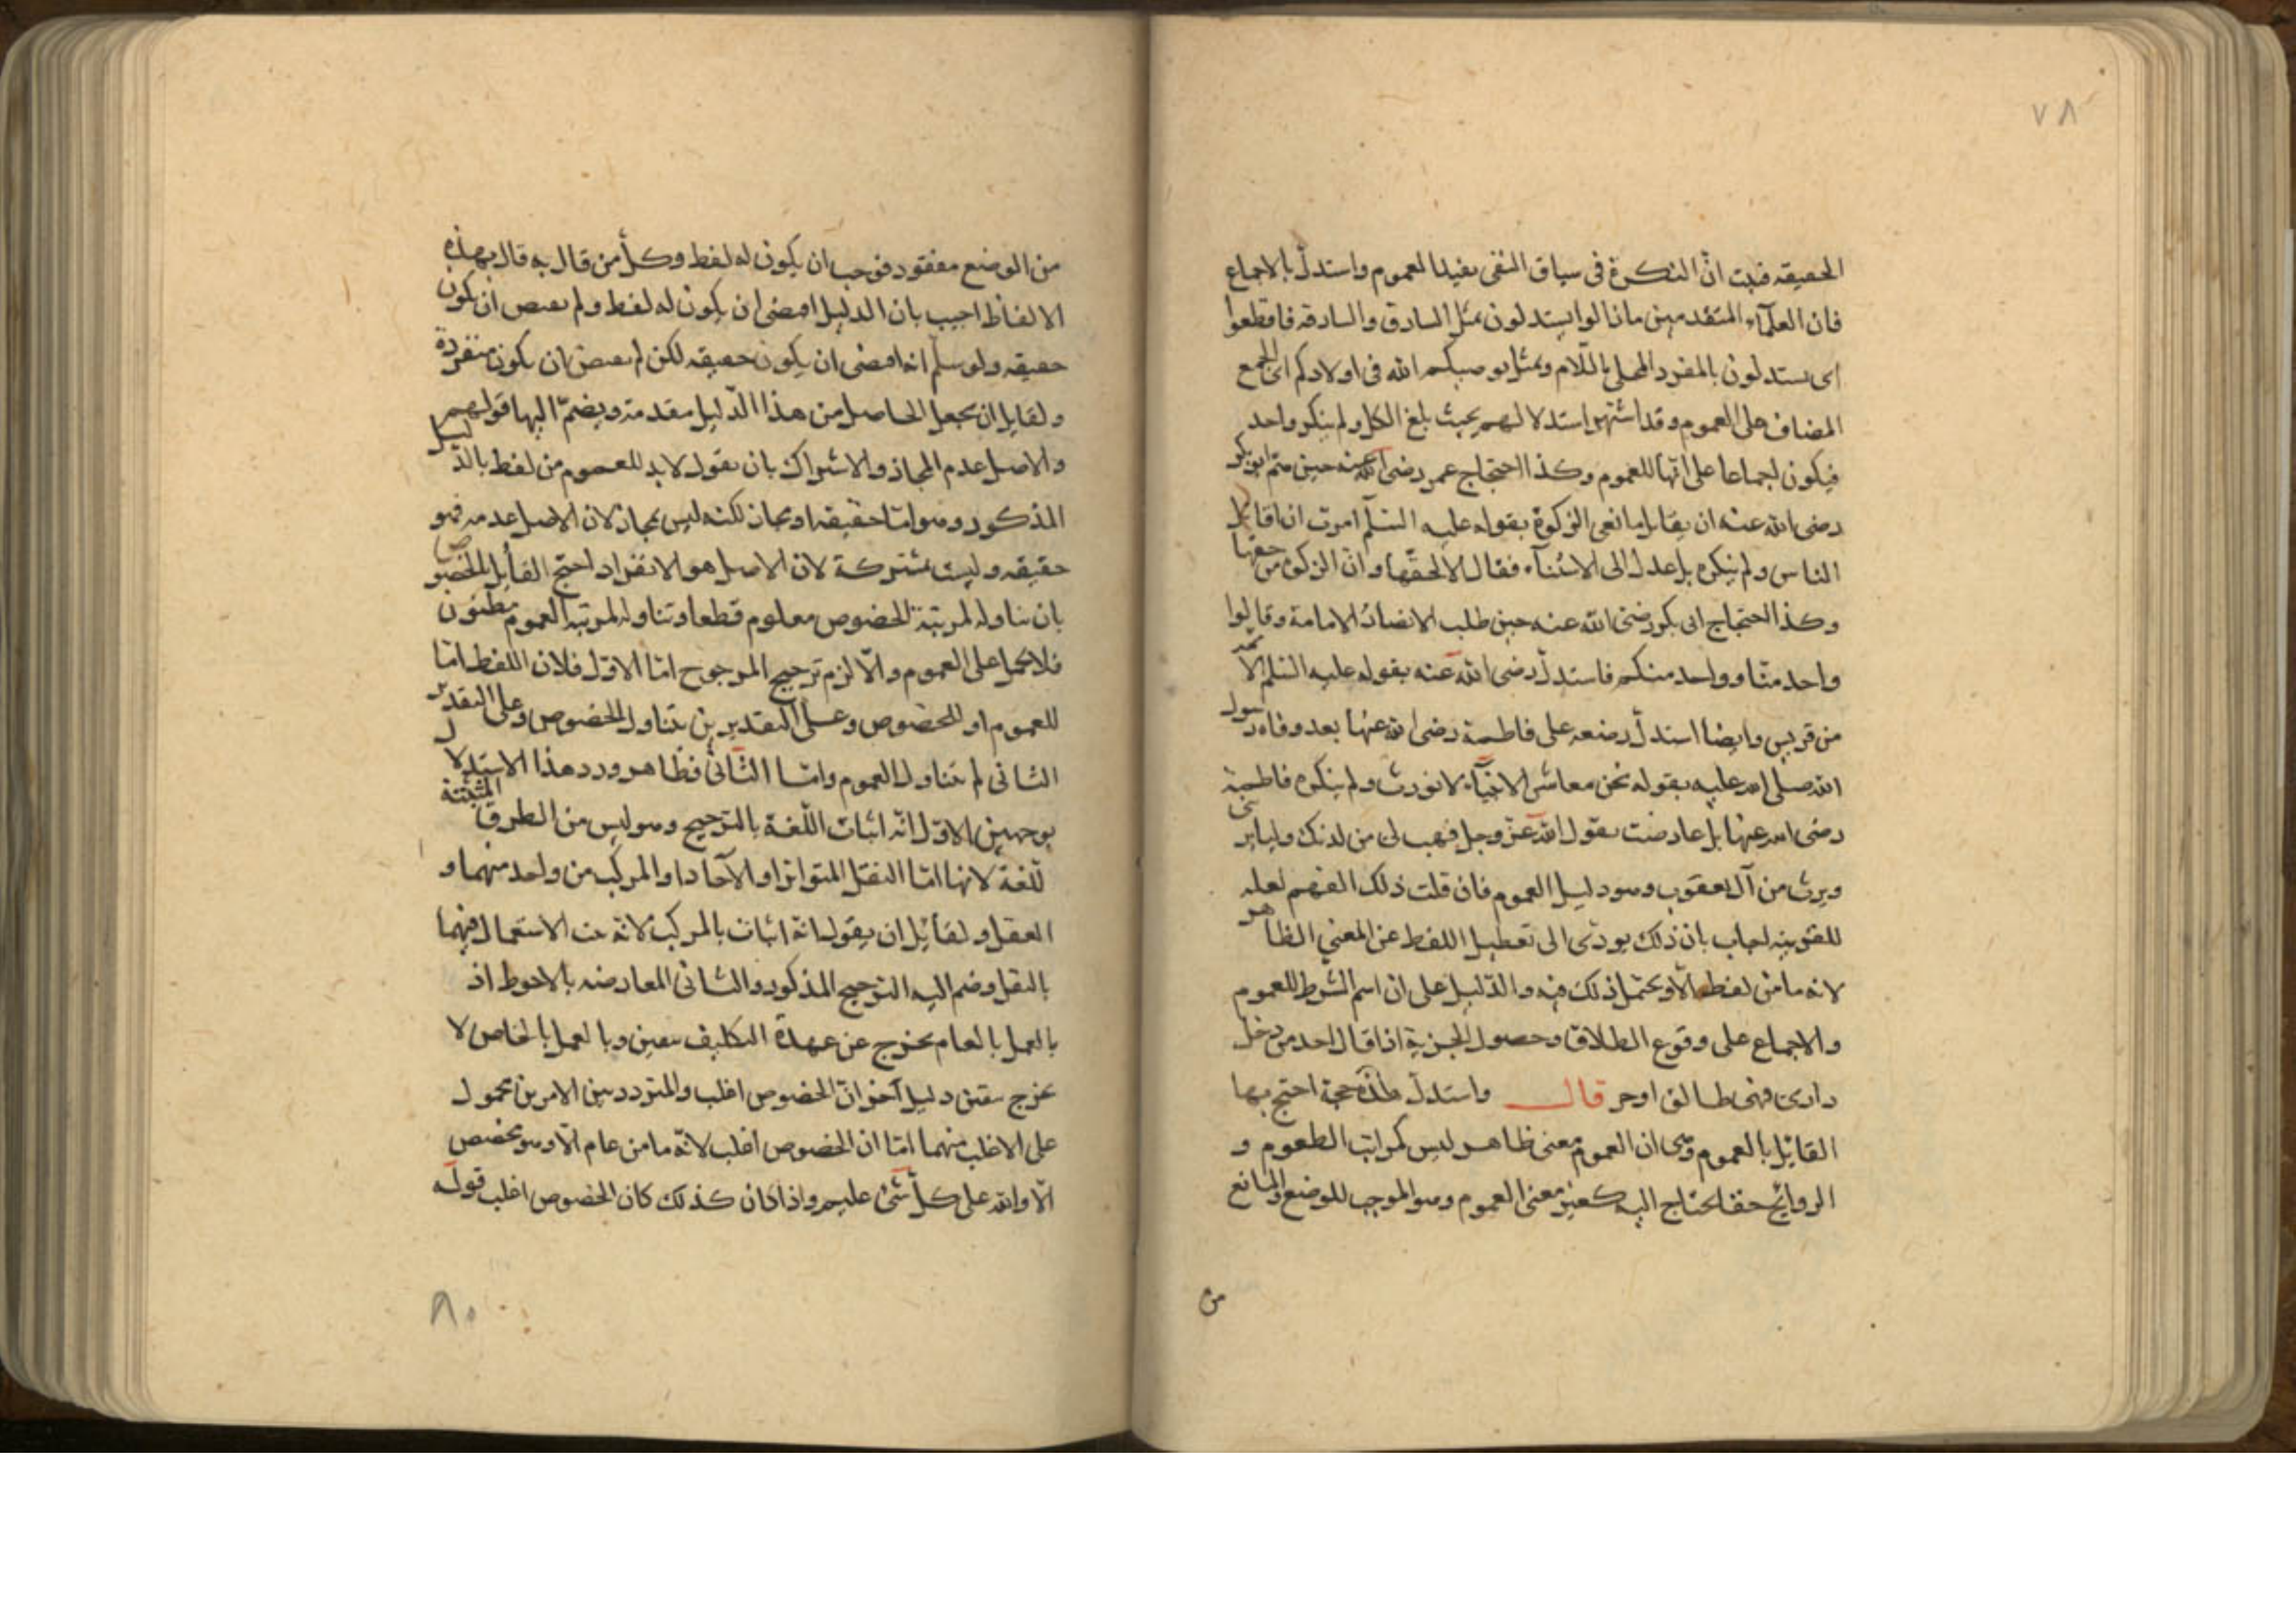 ٧٨
الحقيقة فثبت انّ النكرة فى سياق النفى يفيد العموم واستدلّ بالاجماع
فان العلمآء المتقدمين مازالوا يستدلون بمثل السارق والسارقة فاقطعوا
اى يستدلون بالمفرد المحلى باللّام وبمثل يوصيكم الله فى اولادكم اى الجمع
المضاف على العموم وقد اشتهر استدلالهم بحيث بلغ الكل ولم ينكر واحد
فيكون اجماعا على انّها للعموم وكذا احتجاج عمر رضى الله عنه حين همّ ابو بكر
رضى الله عنه ان يقاتل مانعى الزكوة بقوله عليه السّلم امرت ان اقاتل
الناس ولم ينكره بل عدل الى الاستثنآء فقال الّا بحقّها وانّ الزكوة من حقها
وكذا احتجاج ابى بكر رضى الله عنه حين طلب الانصار الامامة وقالوا
واحد منّا وواحد منكم فاستدلّ رضى الله عنه بقوله عليه السّلم الائمة
من قريش وايضا استدلّ رضعه على فاطمة رضى الله عنها بعد وفاة رسول
الله صلى الله عليه بقوله نحن معاشر الانبيآء لا نورث ولم ينكره فاطمة
رضى الله عنها بل عارضت بقول الله عزّ وجل فهب لى من لدنك وليا يرثنى
ويرث من آل يعقوب وهو دليل العموم فان قلت ذلك الفهم لعله
للقرينه اجاب بان ذلك يودّى الى تعطيل اللفظ عن المعنى الظاهر
لانه ما من لفظ الّا ويحتمل ذلك فيه والدّليل على ان اسم الشرط للعموم
والاجماع على وقوع الطلاق وحصول الحرية اذا قال احد من دخل
دارى فهى طالق او حر قال واستدلّ هذه حجة احتج بها
القائل بالعموم وهى ان العموم معنى ظاهر ليس كمراتب الطعوم و
الروائح حقا يحتاج اليه كغير معنى العموم وهو الموجب للوضع والمانع
من
من الوضع مفقود فوجب ان يكون له لفظ وكلّ من قال به قال بهذه
الالفاظ اجيب بان الدليل اقتضى ان يكون له لفظ ولم يقتض ان يكون
حقيقة ولو سلّم انه اقتضى ان يكون حقيقة لكن لم يقتض ان يكون منفردة
ولقايل ان يجعل الحاصل من هذا الدّليل مقدمة ويضمّ اليها قولهم
والاصل عدم المجاز والاشتراك بان يقول لابد للعموم من لفظ بالدّليل
المذكور وهو امّا حقيقة او مجاز لكنّه ليس بمجاز لان الاصل عدمه فهو
حقيقة وليست مشتركة لان الاصل هو الانفراد احتجّ القائل بالخصوص
بان تناوله لمرتبة الخصوص معلوم قطعا وتناوله لمرتبة العموم مظنون
فلا يحمل على العموم والّا لزم ترجيح المرجوح امّا الاوّل فلان اللفظ امّا
للعموم او للخصوص وعلى التقديرين يتناول الخصوص وعلى التقدير
الثانى لم يتناول العموم وامّا الثّانى فظاهر ورد هذا الاستدلال
بوجهين الاوّل انّه اثبات اللّغة بالترجيح وهو ليس من الطرق المثبتة
للّغة لانها امّا النقل المتواتر او الآحاد او المركّب من واحد منهما و
العقل ولقائل ان يقول انه اثبات بالمركّب لانّه ثبت الاستعمال فيهما
بالنقل وضم اليه الترجيح المذكور والثانى المعارضة بالاحوط اذ
بالعمل بالعام يخرج عن عهدة التكليف بيقين وبالعمل بالخاص لا
يخرج بيقين دليل آخر انّ الخصوص اغلب والمتردد بين الامرين محمول
على الاغلب منهما امّا ان الخصوص اغلب لانّه ما من عام الّا وهو يخصص
الّا والله على كلّ شئ عليم واذا كان كذلك كان الخصوص اغلب قوله
٨٠